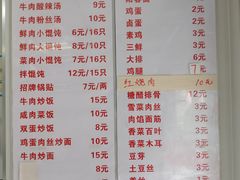 牛肉酸辣汤 9元
牛肉粉丝汤 7元
鲜肉小馄饨 6元/16只
鲜肉大馄饨 8元/16只
菜肉小馄饨 7元/16只
拌馄饨 12元/15只
招牌锅贴 7元/两
牛肉炒饭 15元
咸肉菜饭 10元
双蛋炒饭 8元
鸡蛋肉丝炒面 10元
牛肉炒面 15元
鸡蛋 2元
卤蛋 2元
素鸡 2元
三鲜 2元
大排 6元
鸡腿 7元
红烧肉 10元
糖醋排骨 12元
雪菜肉丝 3元
肉焰面筋 3元
香菜百叶 3元
香菜木耳 3元
豆芽 3元
土豆丝 3元